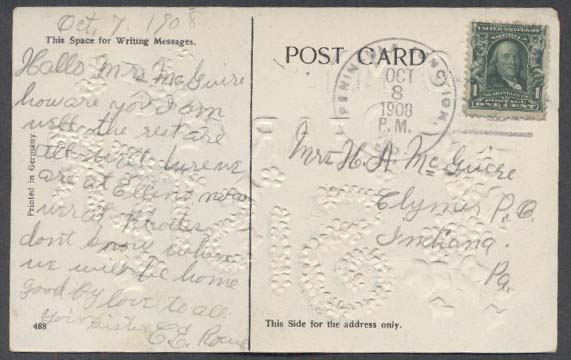 Oct. 7. 1908
This Space for Writing Messages.
Hallo Mrs McGuire
how are you I am
well the rest are
all well here we
are at
dont know when
we will be home
good by love to all
your sister
C. E.
Printed in Germany.
488
POST CARD
OCT
8
1908
P.M.
UNITED STATES OF AMERICA
1 1
POSTAGE
ONE CENT
Mrs H. A. McGuire
Clymer P.O.
Indiana.
Pa.
This Side for the address only.